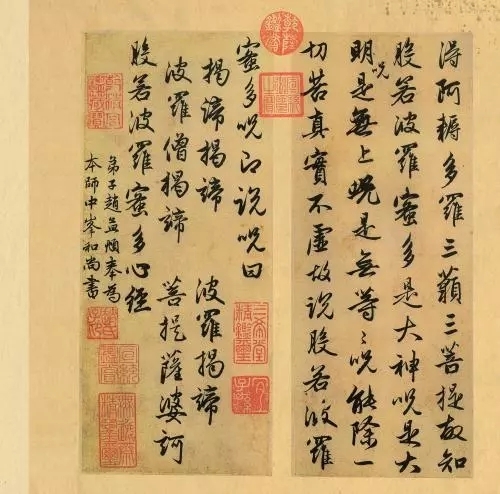 得阿耨多羅三藐三菩提故知
般若波羅蜜多是大神呪是大
明呪是無上呪是無等〻呪能除一
切苦真實不虛故說般若波羅
蜜多呪即說呪曰
揭諦揭諦 波羅揭諦
波羅僧揭諦 菩提薩婆訶
般若波羅蜜多心經
弟子趙孟頫奉為
本師中峯和尚書
乾隆鑑賞
三希堂精鑑璽
宜子孫